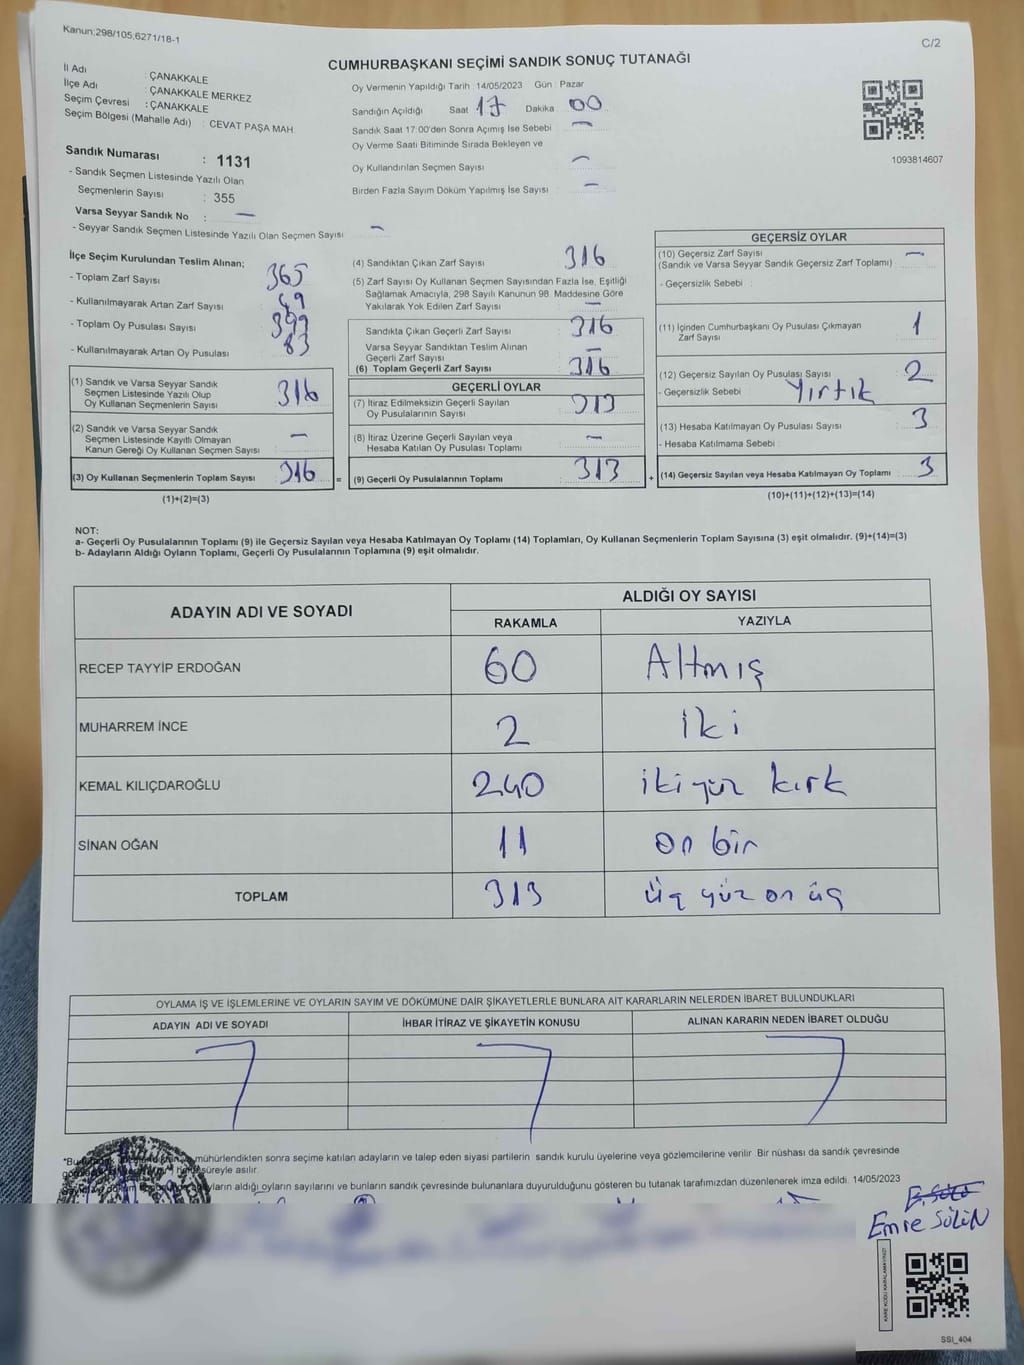 Kanun:298/105,6271/18-1
C/2
CUMHURBAŞKANI SEÇİMİ SANDIK SONUÇ TUTANAĞI
İl Adı : ÇANAKKALE
İlçe Adı : ÇANAKKALE MERKEZ
Seçim Çevresi : ÇANAKKALE
Seçim Bölgesi (Mahalle Adı) : CEVAT PAŞA MAH.
Sandık Numarası : 1131
- Sandık Seçmen Listesinde Yazılı Olan
Seçmenlerin Sayısı : 355
Varsa Seyyar Sandık No : —
- Seyyar Sandık Seçmen Listesinde Yazılı Olan Seçmen Sayısı —
Oy Vermenin Yapıldığı Tarih : 14/05/2023 Gün : Pazar
Sandığın Açıldığı Saat 17 Dakika 00
Sandık Saat 17:00'den Sonra Açımış İse Sebebi —
Oy Verme Saati Bitiminde Sırada Bekleyen ve
Oy Kullandırılan Seçmen Sayısı —
Birden Fazla Sayım Döküm Yapılmış İse Sayısı —
1093814607
İlçe Seçim Kurulundan Teslim Alınan;
- Toplam Zarf Sayısı 365
- Kullanılmayarak Artan Zarf Sayısı 49
- Toplam Oy Pusulası Sayısı 399
- Kullanılmayarak Artan Oy Pusulası 83
(1) Sandık ve Varsa Seyyar Sandık
Seçmen Listesinde Yazılı Olup
Oy Kullanan Seçmenlerin Sayısı 316
(2) Sandık ve Varsa Seyyar Sandık
Seçmen Listesinde Kayıtlı Olmayan
Kanun Gereği Oy Kullanan Seçmen Sayısı —
(3) Oy Kullanan Seçmenlerin Toplam Sayısı 316 =
(1)+(2)=(3)
(4) Sandıktan Çıkan Zarf Sayısı 316
(5) Zarf Sayısı Oy Kullanan Seçmen Sayısından Fazla İse, Eşitliği
Sağlamak Amacıyla, 298 Sayılı Kanunun 98. Maddesine Göre
Yakılarak Yok Edilen Zarf Sayısı —
Sandıkta Çıkan Geçerli Zarf Sayısı 316
Varsa Seyyar Sandıktan Teslim Alınan
Geçerli Zarf Sayısı —
(6) Toplam Geçerli Zarf Sayısı 316
GEÇERLİ OYLAR
(7) İtiraz Edilmeksizin Geçerli Sayılan
Oy Pusulalarının Sayısı 313
(8) İtiraz Üzerine Geçerli Sayılan veya
Hesaba Katılan Oy Pusulası Toplamı —
(9) Geçerli Oy Pusulalarının Toplamı 313 +
GEÇERSİZ OYLAR
(10) Geçersiz Zarf Sayısı —
(Sandık ve Varsa Seyyar Sandık Geçersiz Zarf Toplamı)
- Geçersizlik Sebebi :
(11) İçinden Cumhurbaşkanı Oy Pusulası Çıkmayan
Zarf Sayısı 1
(12) Geçersiz Sayılan Oy Pusulası Sayısı 2
- Geçersizlik Sebebi Yırtık
(13) Hesaba Katılmayan Oy Pusulası Sayısı 3
- Hesaba Katılmama Sebebi :
(14) Geçersiz Sayılan veya Hesaba Katılmayan Oy Toplamı 3
(10)+(11)+(12)+(13)=(14)
NOT:
a- Geçerli Oy Pusulalarının Toplamı (9) ile Geçersiz Sayılan veya Hesaba Katılmayan Oy Toplamı (14) Toplamları, Oy Kullanan Seçmenlerin Toplam Sayısına (3) eşit olmalıdır. (9)+(14)=(3)
b- Adayların Aldığı Oyların Toplamı, Geçerli Oy Pusulalarının Toplamına (9) eşit olmalıdır.
ADAYIN ADI VE SOYADI
ALDIĞI OY SAYISI
RAKAMLA YAZIYLA
RECEP TAYYİP ERDOĞAN 60 Altmış
MUHARREM İNCE 2 iki
KEMAL KILIÇDAROĞLU 240 iki yüz kırk
SİNAN OĞAN 11 on bir
TOPLAM 313 üç yüz on üç
OYLAMA İŞ VE İŞLEMLERİNE VE OYLARIN SAYIM VE DÖKÜMÜNE DAİR ŞİKAYETLERLE BUNLARA AİT KARARLARIN NELERDEN İBARET BULUNDUKLARI
ADAYIN ADI VE SOYADI İHBAR İTİRAZ VE ŞİKAYETİN KONUSU ALINAN KARARIN NEDEN İBARET OLDUĞU
mühürlendikten sonra seçime katılan adayların ve talep eden siyasi partilerin sandık kurulu üyelerine veya gözlemcilerine verilir. Bir nüshası da sandık çevresinde
süreyle asılır.
aldığı oyların sayılarını ve bunların sandık çevresinde bulunanlara duyurulduğunu gösteren bu tutanak tarafımızdan düzenlenerek imza edildi. 14/05/2023
Emre SÖLÜN
KARE KODU KARALAMAYINIZ!
SSI_404